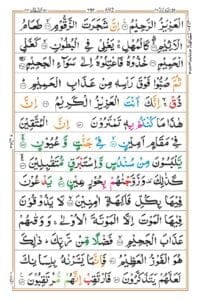 الْعَزِيزُ الرَّحِيمُ إِنَّ شَجَرَتَ الزَّقُّومِ طَعَامُ
الْأَثِيمِ كَالْمُهْلِ يَغْلِي فِي الْبُطُونِ كَغَلْيِ
الْحَمِيمِ خُذُوهُ فَاعْتِلُوهُ إِلٰى سَوَاءِ الْجَحِيمِ
ثُمَّ صُبُّوا فَوْقَ رَأْسِهِ مِنْ عَذَابِ الْحَمِيمِ
ذُقْ إِنَّكَ أَنْتَ الْعَزِيزُ الْكَرِيمُ إِنَّ
هٰذَا مَا كُنْتُمْ بِهِ تَمْتَرُونَ إِنَّ الْمُتَّقِينَ
فِي مَقَامٍ أَمِينٍ فِي جَنّٰتٍ وَّعُيُونٍ
يَلْبَسُونَ مِنْ سُنْدُسٍ وَّإِسْتَبْرَقٍ مُّتَقٰبِلِينَ
كَذٰلِكَ وَزَوَّجْنٰهُمْ بِحُورٍ عِينٍ يَدْعُونَ
فِيهَا بِكُلِّ فَاكِهَةٍ اٰمِنِينَ لَا يَذُوقُونَ
فِيهَا الْمَوْتَ إِلَّا الْمَوْتَةَ الْأُولٰى وَوَقٰهُمْ
عَذَابَ الْجَحِيمِ فَضْلًا مِّنْ رَّبِّكَ ذٰلِكَ
هُوَ الْفَوْزُ الْعَظِيمُ فَإِنَّمَا يَسَّرْنٰهُ بِلِسَانِكَ
لَعَلَّهُمْ يَتَذَكَّرُونَ فَارْتَقِبْ إِنَّهُمْ مُّرْتَقِبُونَ